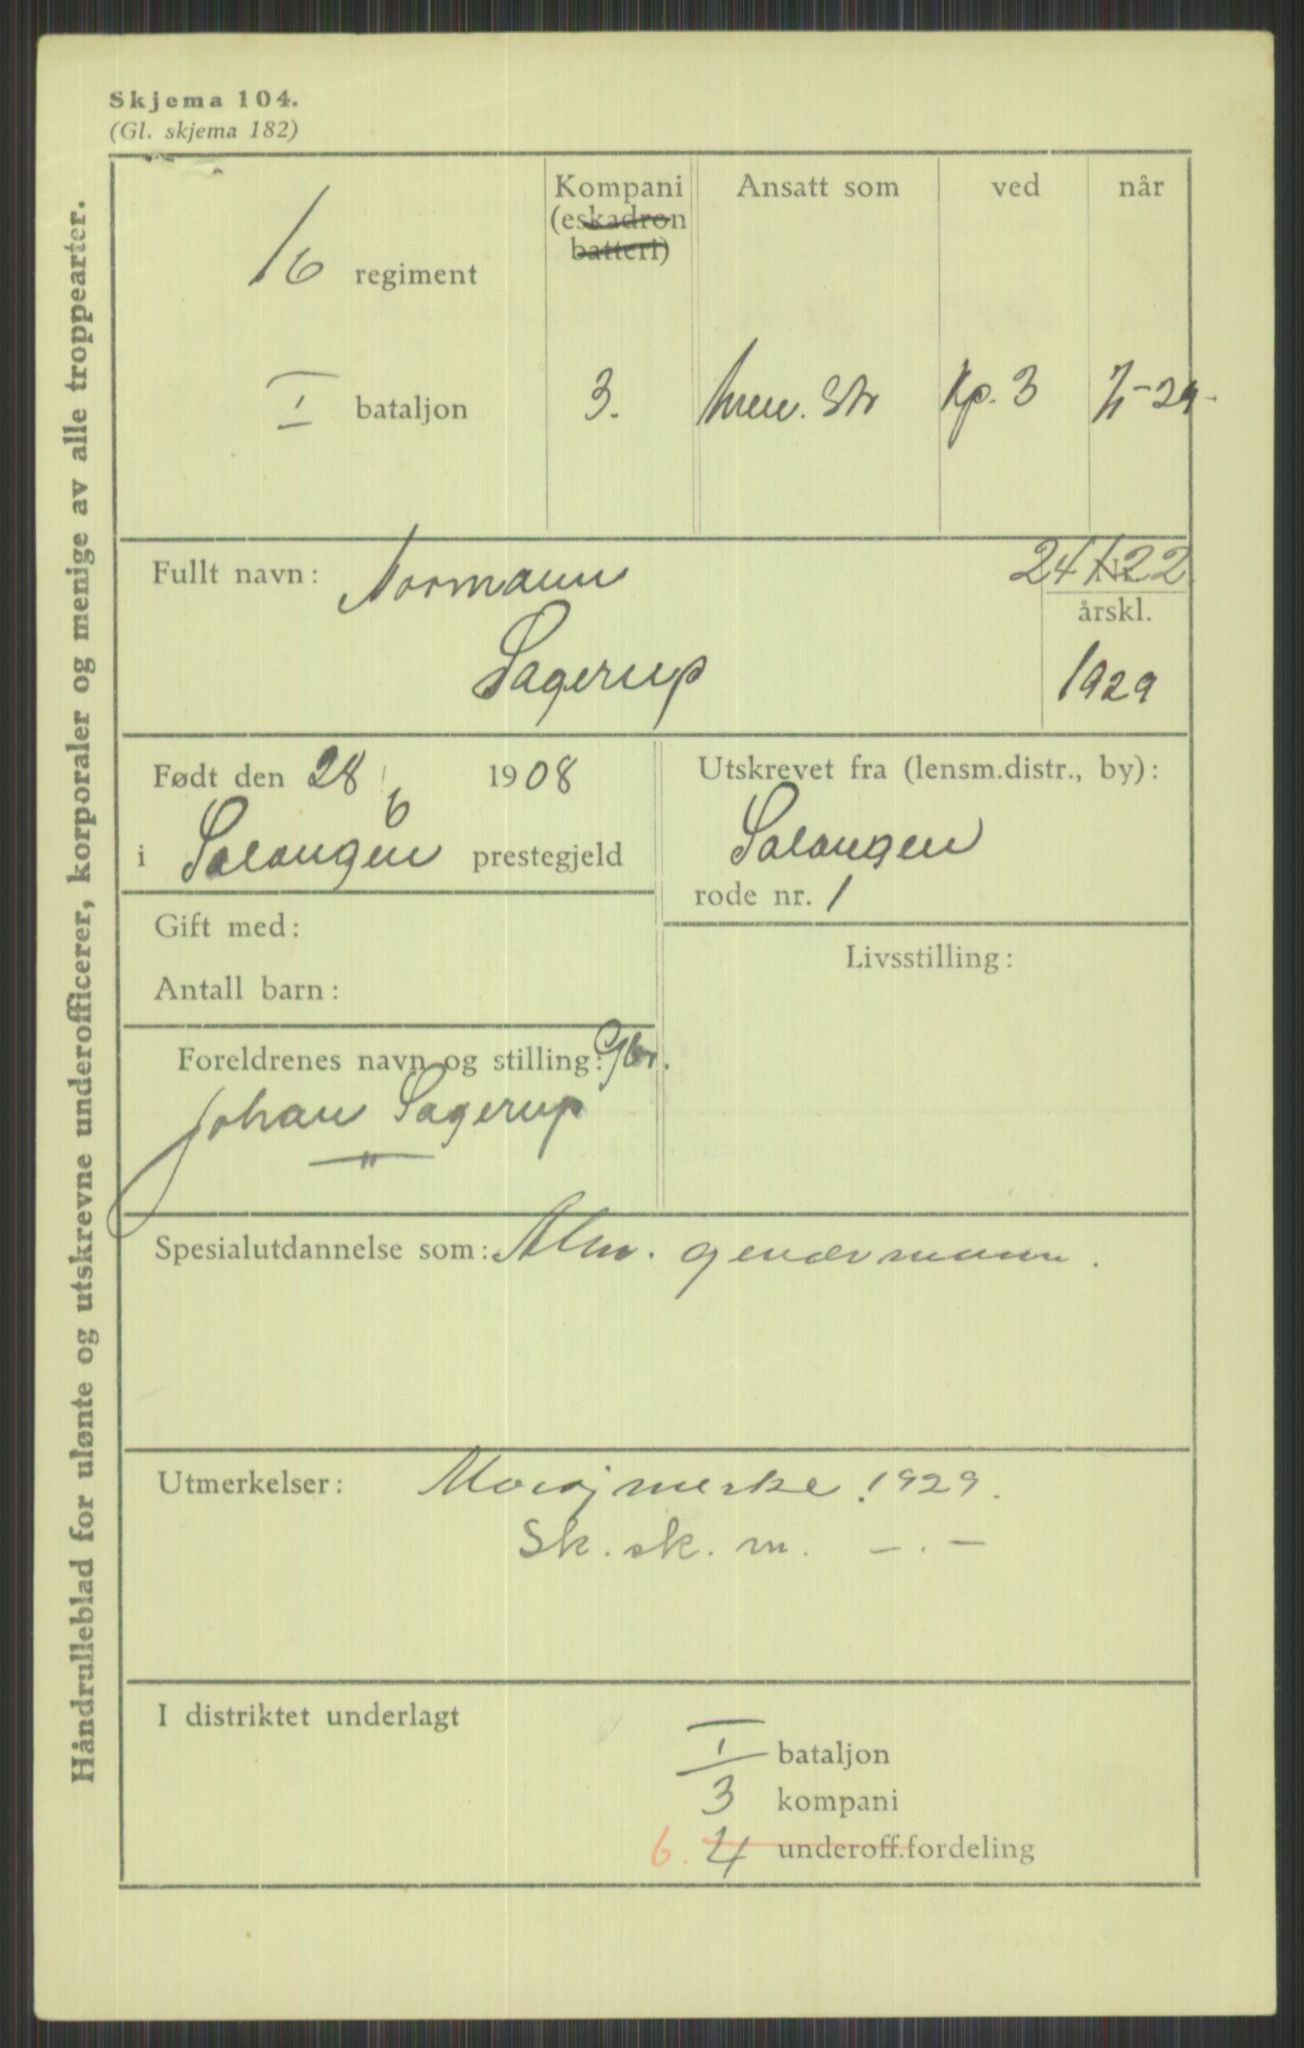 Skjema 104.
(Gl. skjema 182)
Håndrulleblad for ulønte og utskrevne underofficerer, korporaler og menige av alle troppearter.
Kompani (eskadron batteri) Ansatt som ved når
16 regiment
I bataljon 3. men. Str Kp. 3 -29-
Fullt navn: Normann
Sagerup
24/122
Nr.
årskl.
1929
Født den 28/6 1908
i Salangen prestegjeld
Utskrevet fra (lensm.distr., by):
Salangen
rode nr. 1
Gift med:
Antall barn:
Livsstilling:
Foreldrenes navn og stilling: Gbr.
Johan Sagerup
—"—
Spesialutdannelse som: Alm. geværmann.
Utmerkelser: Marsjmerke 1929.
Sk. sk. m. —.—
I distriktet underlagt
I bataljon
3 kompani
6. 4 underoff.fordeling